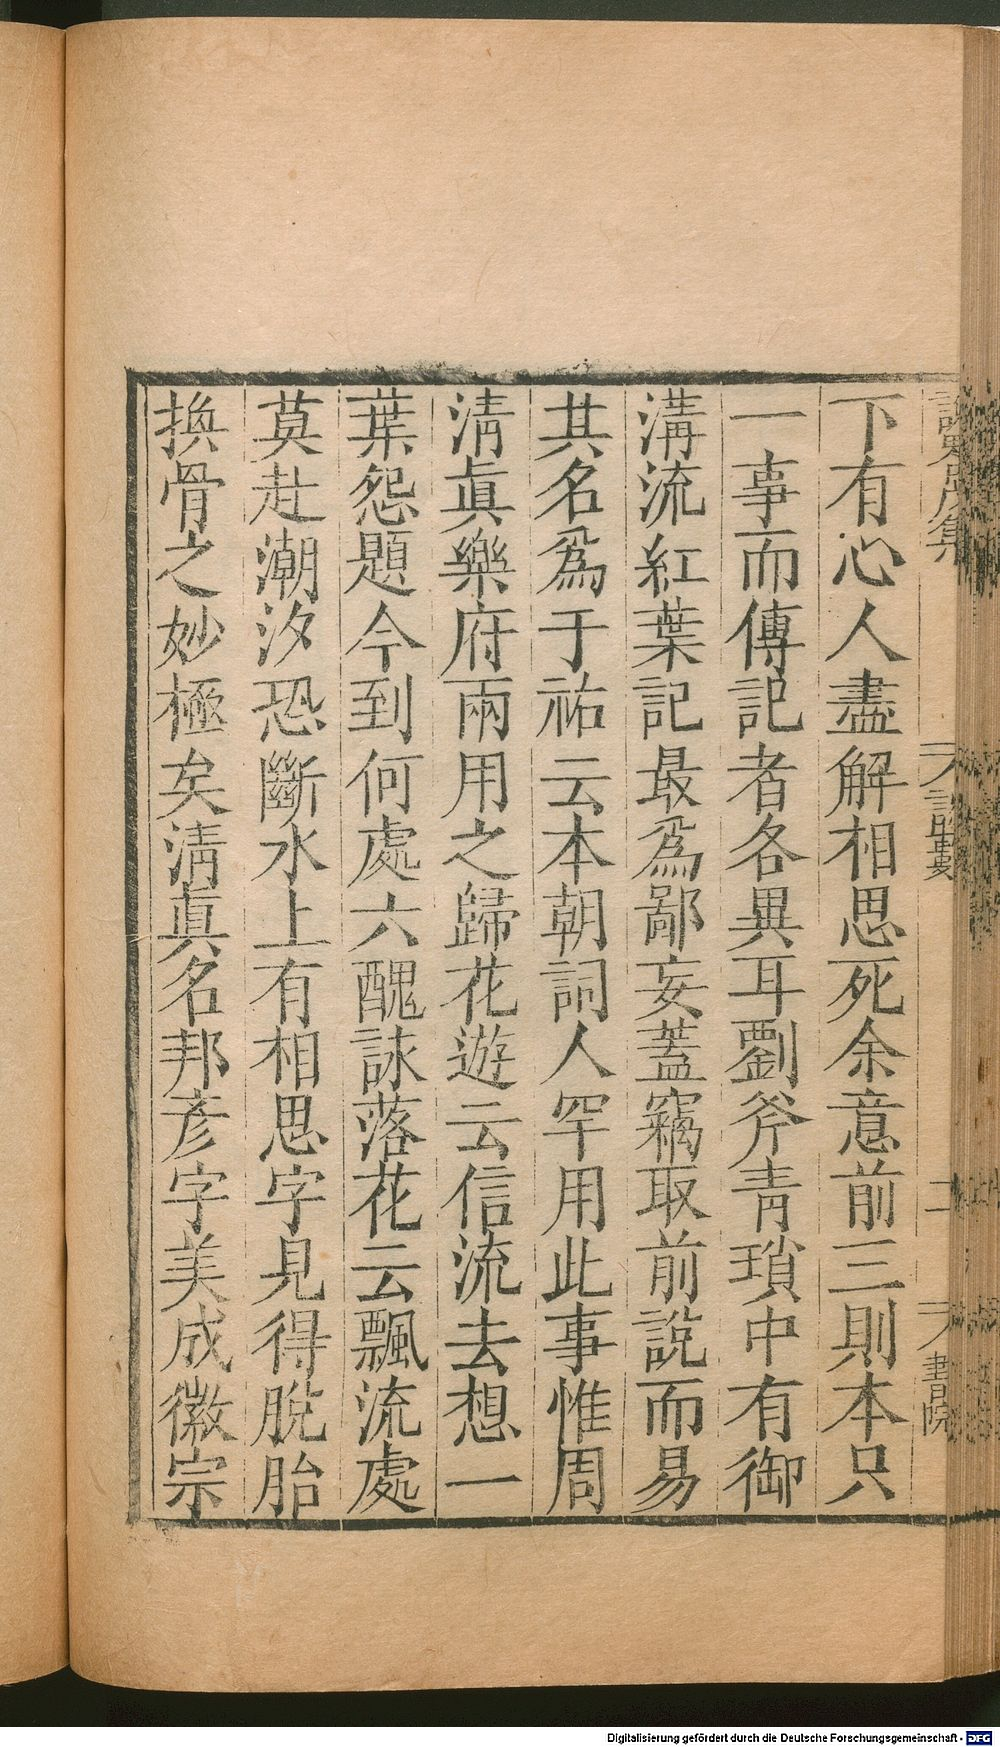 下有心人盡解相思死余意前三則本只
一事而傳記者各異耳劉斧青瑣中有御
溝流紅葉記最爲鄙妄蓋竊取前說而易
其名爲于祐云本朝詞人罕用此事惟周
清眞樂府兩用之歸花遊云信流去想一
葉怨題今到何處六醜詠落花云飄流處
莫赴潮汐恐斷水上有相思字見得脫胎
換骨之妙極矣清眞名邦彥字美成徽宗
Digitalisierung gefördert durch die Deutsche Forschungsgemeinschaft - DFG